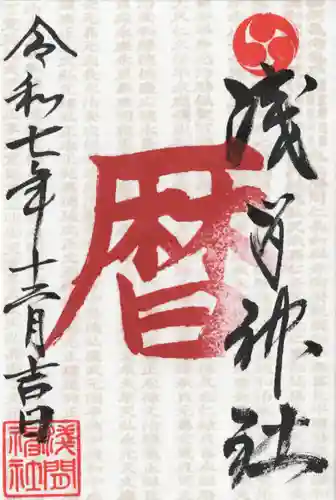 浅間神社
暦
令和七年十二月吉日
浅間神社